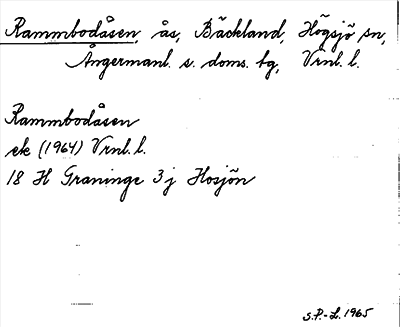 Rammbodåsen, ås, Bäckland, Högsjö sn,
Ångermanl. s. doms. tg, Vrnl. l.
Rammbodåsen
ek (1964) Vrnl. l.
18 H Graninge 3 j Hosjön
S.P.-L. 1965